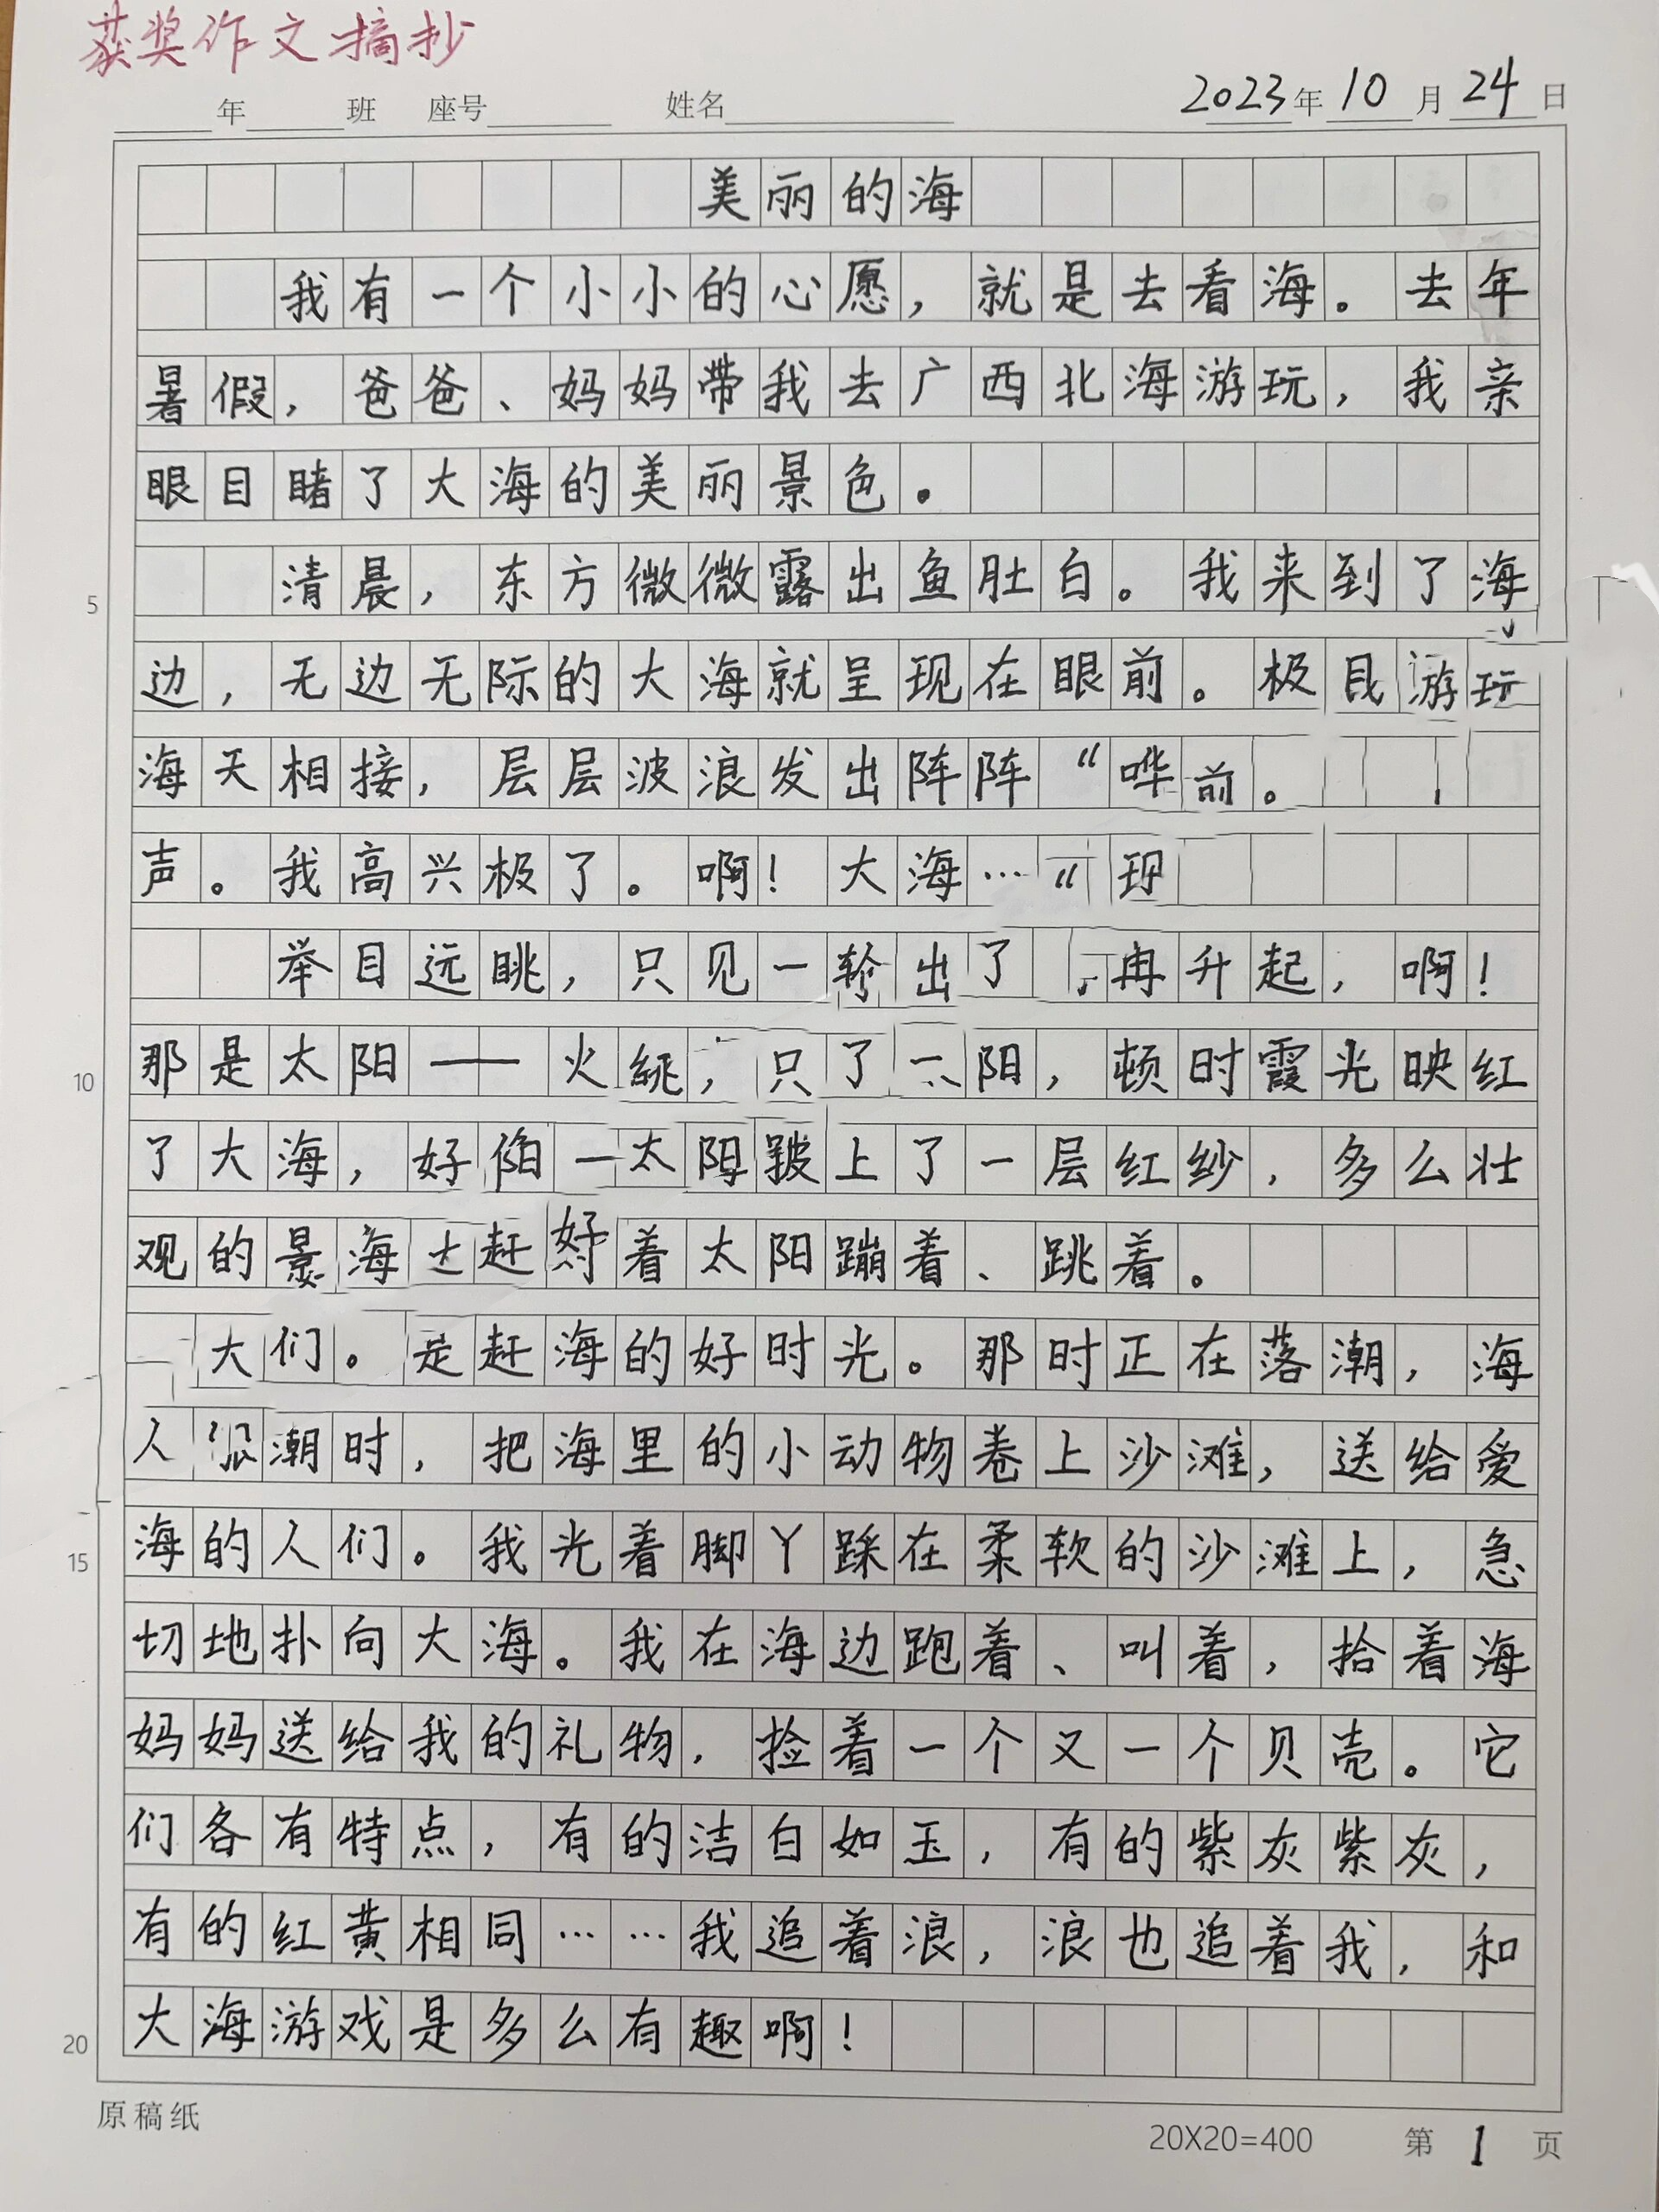 获奖作文摘抄
年 班 座号 姓名 2023年10月24日
美丽的海
我有一个小小的心愿，就是去看海。去年
暑假，爸爸、妈妈带我去广西北海游玩，我亲
眼目睹了大海的美丽景色。
清晨，东方微微露出鱼肚白。我来到了海
5
边，无边无际的大海就呈现在眼前。极目游玩
海天相接，层层波浪发出阵阵“哗前。
声。我高兴极了。啊！大海…“现
举目远眺，只见一出了冉升起，啊！
10
那是太阳——火，只了阳，顿时霞光映红
了大海，好一太阳披上了一层红纱，多么壮
观的景海赶好着太阳蹦着、跳着。
大们。是赶海的好时光。那时正在落潮，海
人浪潮时，把海里的小动物卷上沙滩，送给爱
15
海的人们。我光着脚丫踩在柔软的沙滩上，急
切地扑向大海。我在海边跑着、叫着，拾着海
妈妈送给我的礼物，捡着一个又一个贝壳。它
们各有特点，有的洁白如玉，有的紫灰紫灰，
有的红黄相同……我追着浪，浪也追着我，和
20
大海游戏是多么有趣啊！
原稿纸
20X20=400 第1页